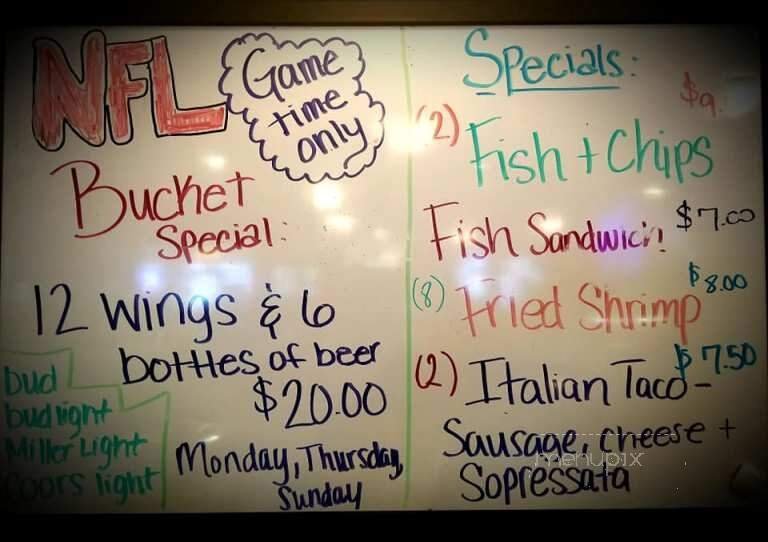 NFL
Game
time
only
Bucket
Special:
12 wings & 6
bottles of beer
$20.00
bud
bud light
Miller Light
Coors light
Monday, Thursday,
Sunday
Specials:
$9
(2) Fish + Chips
Fish Sandwich! $7.00
(8) Fried Shrimp $8.00
(2) Italian Taco - $7.50
Sausage, cheese +
Sopressata
menupix